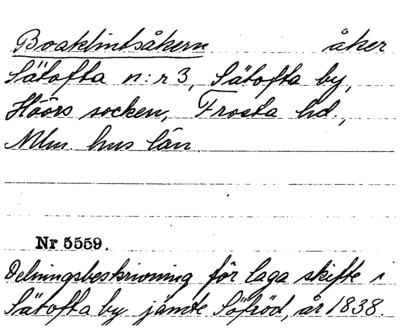 Boaklintsåkern åker
Sätofta n:r 3, Sätofta by,
Höörs socken, Frosta hd,
Mlm. hus län.
Nr 5559.
Delningsbeskrivning för laga skifte i
Sätofta by jämte Söfröd, år 1838.